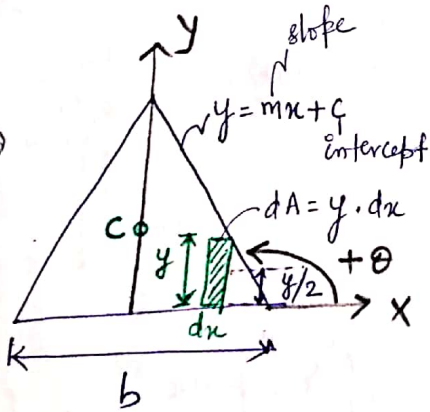 y
slope
y = mx + c
intercept
dA = y.dx
C
y
+θ
y/2
x
dx
b